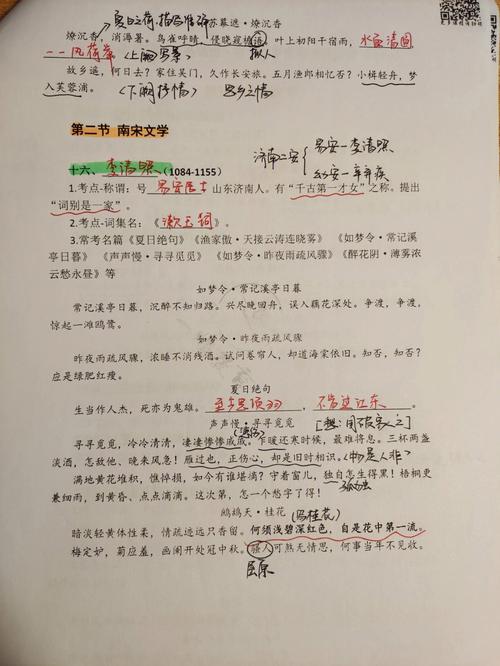 夏日之荷,描写准确 苏幕遮·燎沉香
燎沉香,消溽暑。鸟雀呼晴,侵晓窥檐语。叶上初阳干宿雨,水面清圆
一一风荷举(上阕写景) 拟人
故乡遥,何日去?家住吴门,久作长安旅。五月渔郎相忆否?小楫轻舟,梦
入芙蓉浦。(下阕抒情) 思乡之情
第二节 南宋文学
济南二安 { 易安—李清照
幼安—辛弃疾
十六、李清照(1084-1155)
1.考点-称谓:号 易安居士 山东济南人。有“千古第一才女”之称。提出
“词别是一家”。
2.考点-词集名:《漱玉词》。
3.常考名篇《夏日绝句》《渔家傲·天接云涛连晓雾》《如梦令·常记溪
亭日暮》《声声慢·寻寻觅觅》《如梦令·昨夜雨疏风骤》《醉花阴·薄雾浓
云愁永昼》等
如梦令·常记溪亭日暮
常记溪亭日暮,沉醉不知归路。兴尽晚回舟,误入藕花深处。争渡,争渡,
惊起一滩鸥鹭。
如梦令·昨夜雨疏风骤
昨夜雨疏风骤,浓睡不消残酒。试问卷帘人,却道海棠依旧。知否,知否?
应是绿肥红瘦。
夏日绝句
生当作人杰,死亦为鬼雄。至今思项羽,不肯过江东。
声声慢·寻寻觅觅
寻寻觅觅,冷冷清清,凄凄惨惨戚戚。乍暖还寒时候,最难将息。三杯两盏
淡酒,怎敌他、晚来风急!雁过也,正伤心,却是旧时相识。(物是人非)
满地黄花堆积,憔悴损,如今有谁堪摘?守着窗儿,独自怎生得黑!梧桐更
兼细雨,到黄昏、点点滴滴。这次第,怎一个愁字了得! 孤独
鹧鸪天·桂花 (写桂花)
暗淡轻黄体性柔,情疏迹远只香留。何须浅碧深红色,自是花中第一流。
梅定妒,菊应羞,画阑开处冠中秋。骚人可煞无情思,何事当年不见收。
屈原